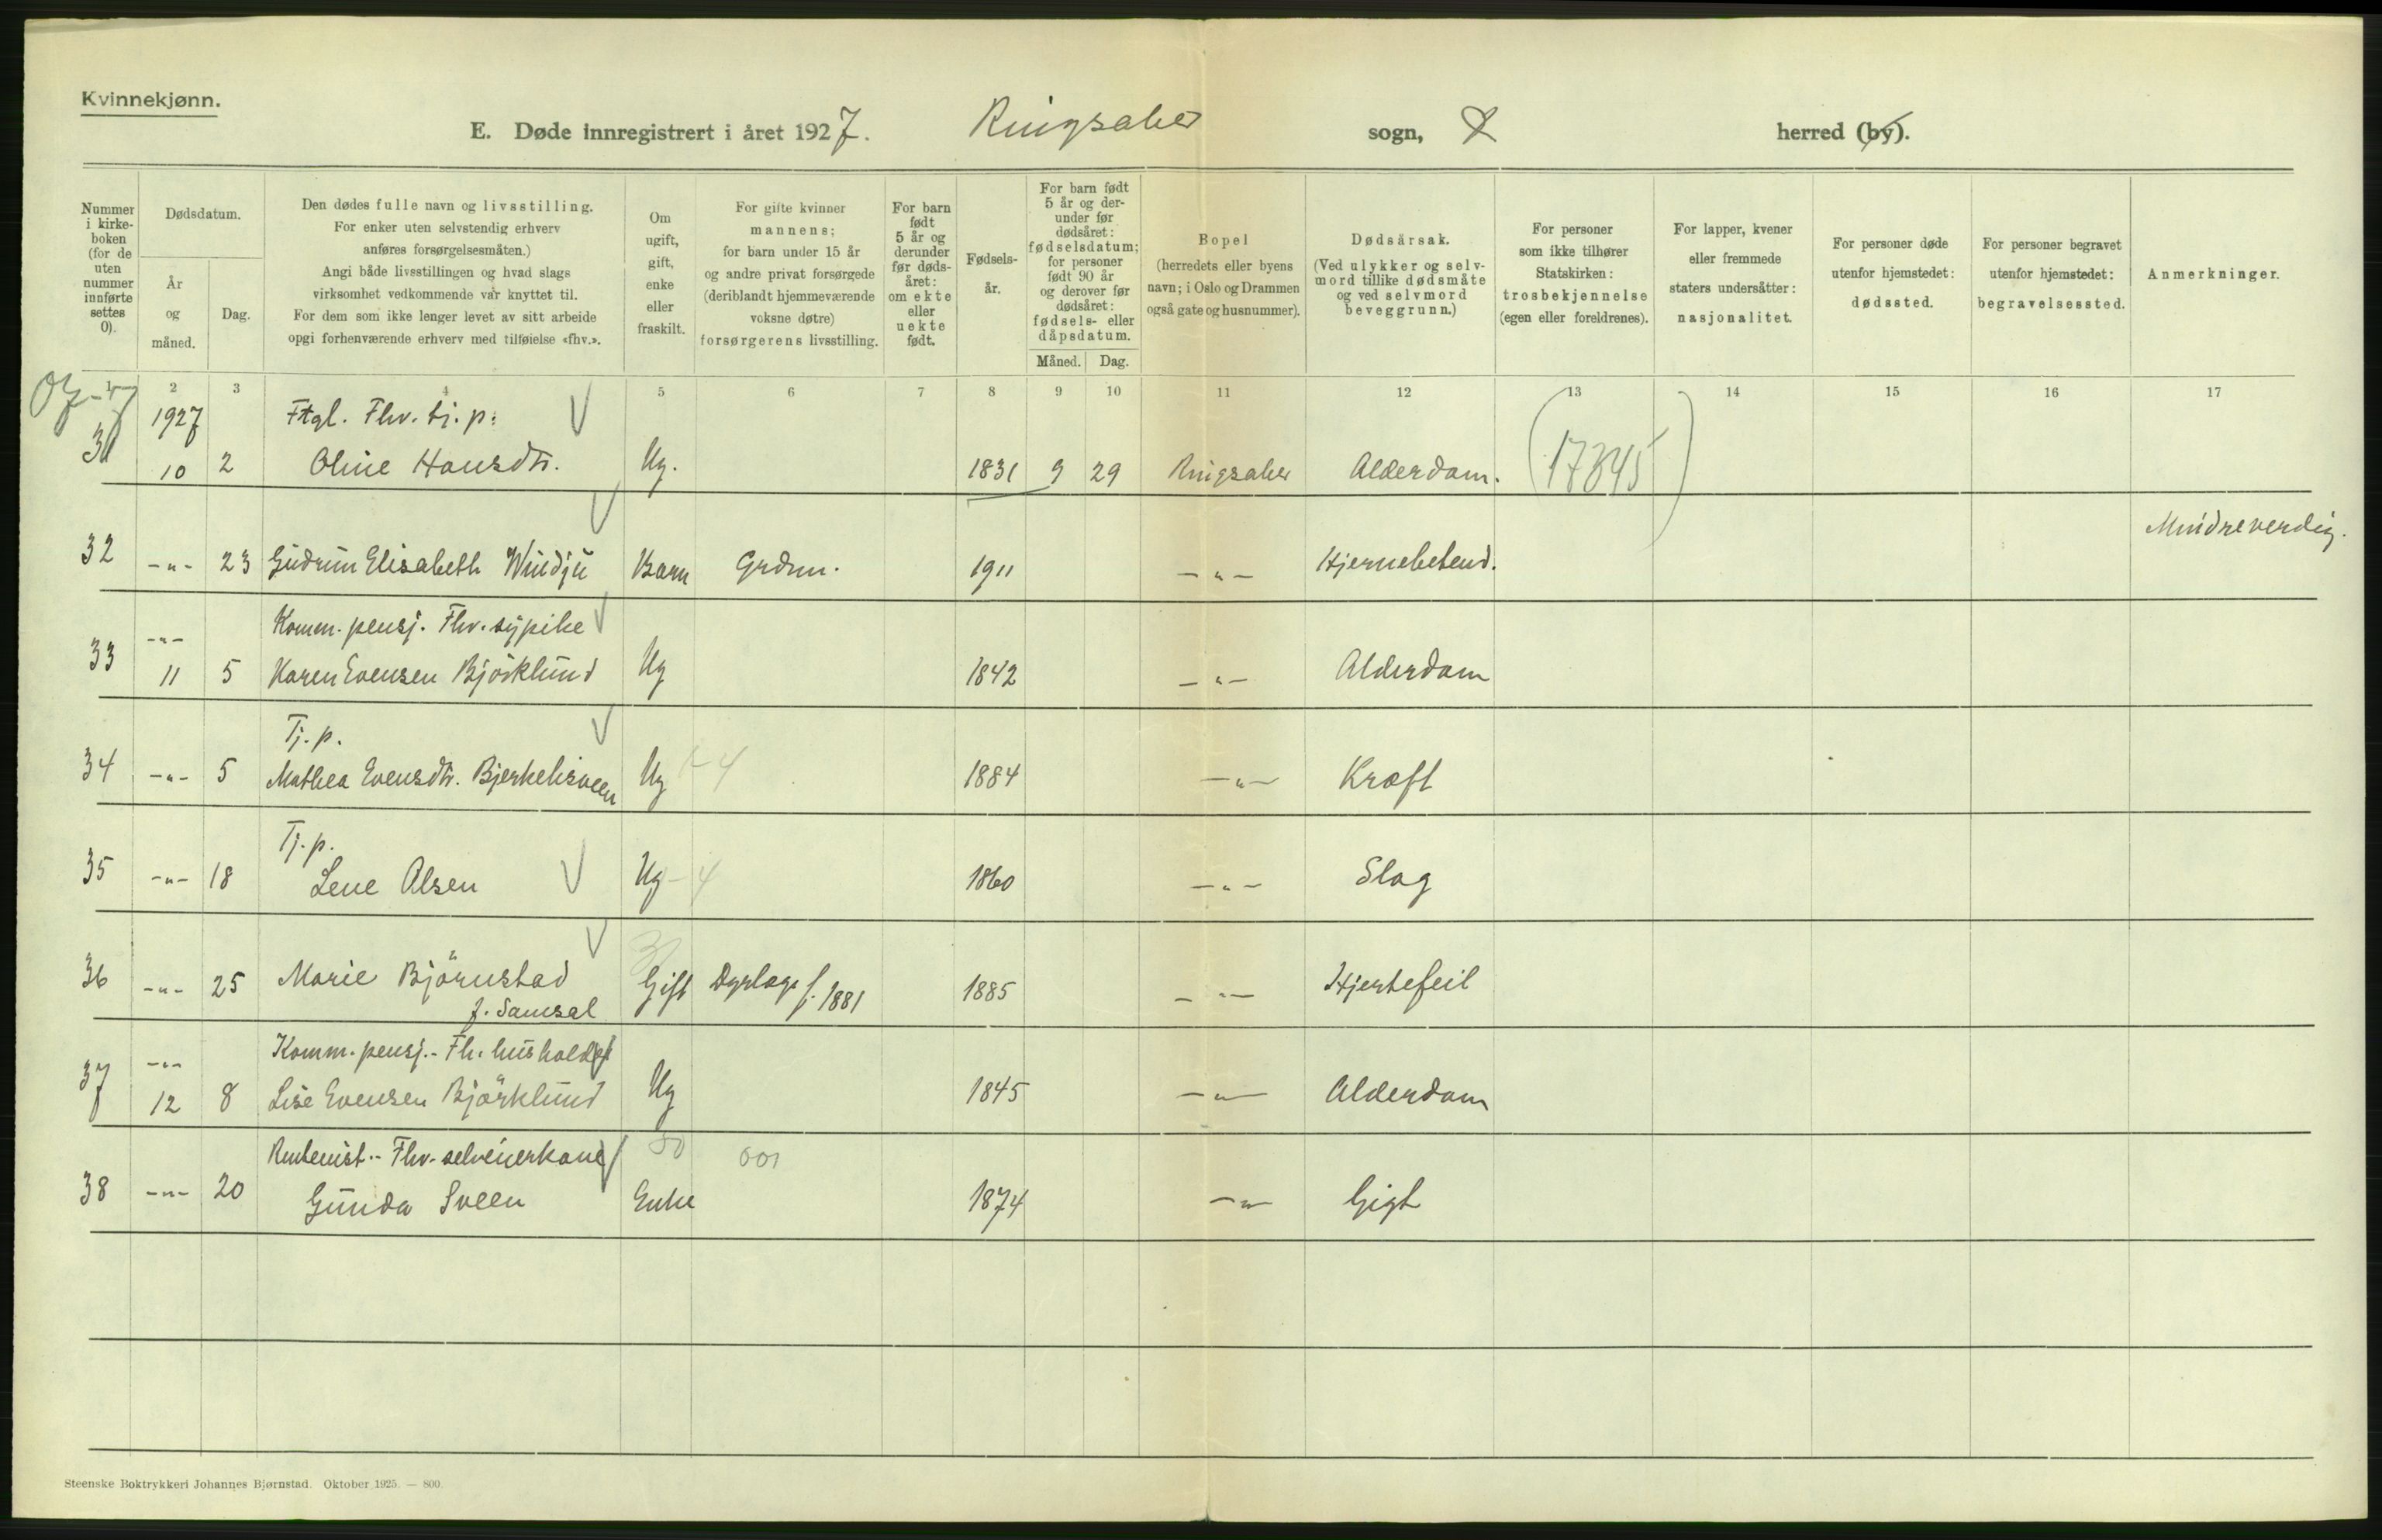 Kvinnekjønn.
E. Døde innregistrert i året 1927. Ringsaker sogn, herred (by).
Nummer i kirkeboken (for de uten nummer innførte settes 0).
Dødsdatum.
År og måned.
Dag.
Den dødes fulle navn og livsstilling.
For enker uten selvstendig erhverv
anføres forsørgelsesmåten.)
Angi både livsstillingen og hvad slags
virksomhet vedkommende var knyttet til.
For dem som ikke lenger levet av sitt arbeide
opgi forhenværende erhverv med tilføielse «fhv.».
Om ugift, gift, enke eller fraskilt.
For gifte kvinner
mannens;
for barn under 15 år
og andre privat forsørgede
(deriblandt hjemmeværende
voksne døtre)
forsørgerens livsstilling.
For barn født 5 år og derunder før dødsåret: om ekte eller uekte født.
Fødselsår.
For barn født 5 år og derunder før dødsåret: fødselsdatum; for personer født 90 år og derover før dødsåret: fødsels- eller dåpsdatum.
Måned. Dag.
Bopel
(herredets eller byens
navn; i Oslo og Drammen
også gate og husnummer).
Dødsårsak.
(Ved ulykker og selvmord tillike dødsmåte og ved selvmord beveggrunn.)
For personer
som ikke tilhører
Statskirken:
trosbekjennelse
(egen eller foreldrenes).
For lapper, kvener
eller fremmede
staters undersåtter:
nasjonalitet.
For personer døde
utenfor hjemstedet:
dødssted.
For personer begravet
utenfor hjemstedet:
begravelsessted.
Anmerkninger.
1 2 3 4 5 6 7 8 9 10 11 12 13 14 15 16 17
1927 Ftgl. Fhv. tj. p:
31 10 2 Oline Hansdtr. Ug. 1831 9 29 Ringsaker Alderdom. (17845)
Mindreverdig.
32 -"- 23 Gudrun Elisabeth Windju Barn Grdm. 1911 -"- Hjernebetend.
-"- Komm. pensj. Fhv. sypike
33 11 5 Karen Evensen Björklund Ug 1842 -"- Alderdom
Tj. p.
34 -"- 5 Mathea Evensdtr. Bjerkelisveen Ug - 4 1884 -"- Kræft
Tj. p.
35 -"- 18 Lene Olsen Ug - 4 1860 -"- Slag
36 -"- 25 Marie Björnstad Gift Dyrlæge f. 1881 1885 -"- Hjertefeil
f. Samsal
-"- Komm. pensj. - Fh. hushold
37 12 8 Lise Evensen Björklund Ug 1845 -"- Alderdom
Rentenist. - Fhv. selveierkone 50 001
38 -"- 20 Gunda Sveen Enke 1874 -"- Gigt
Steenske Boktrykkeri Johannes Bjørnstad. Oktober 1925. — 800.